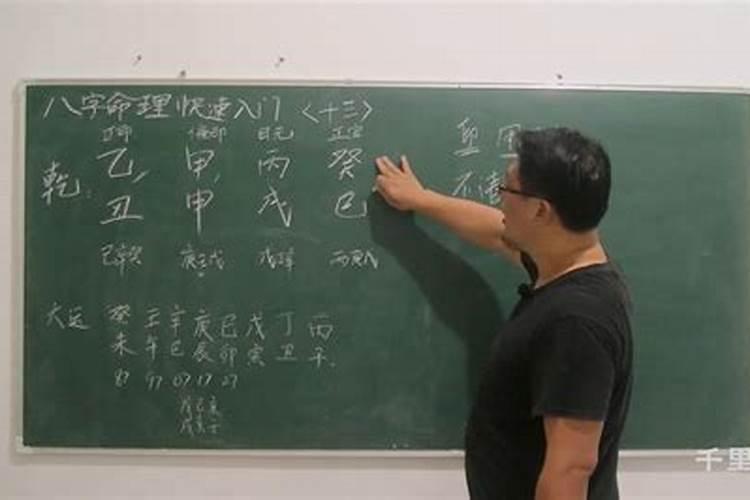 八字命理快速入门〈十三〉
正印 偏印 日元 正官
乾: 乙, 甲, 丙 癸
丑 申 戌 巳
己辛癸 庚壬戊 戊辛丁 丙庚戊
大运 癸 壬 辛 庚 己 戊 丁 丙
未 午 巳 辰 卯 寅 丑 子
87 97 07 17 27
不
千里